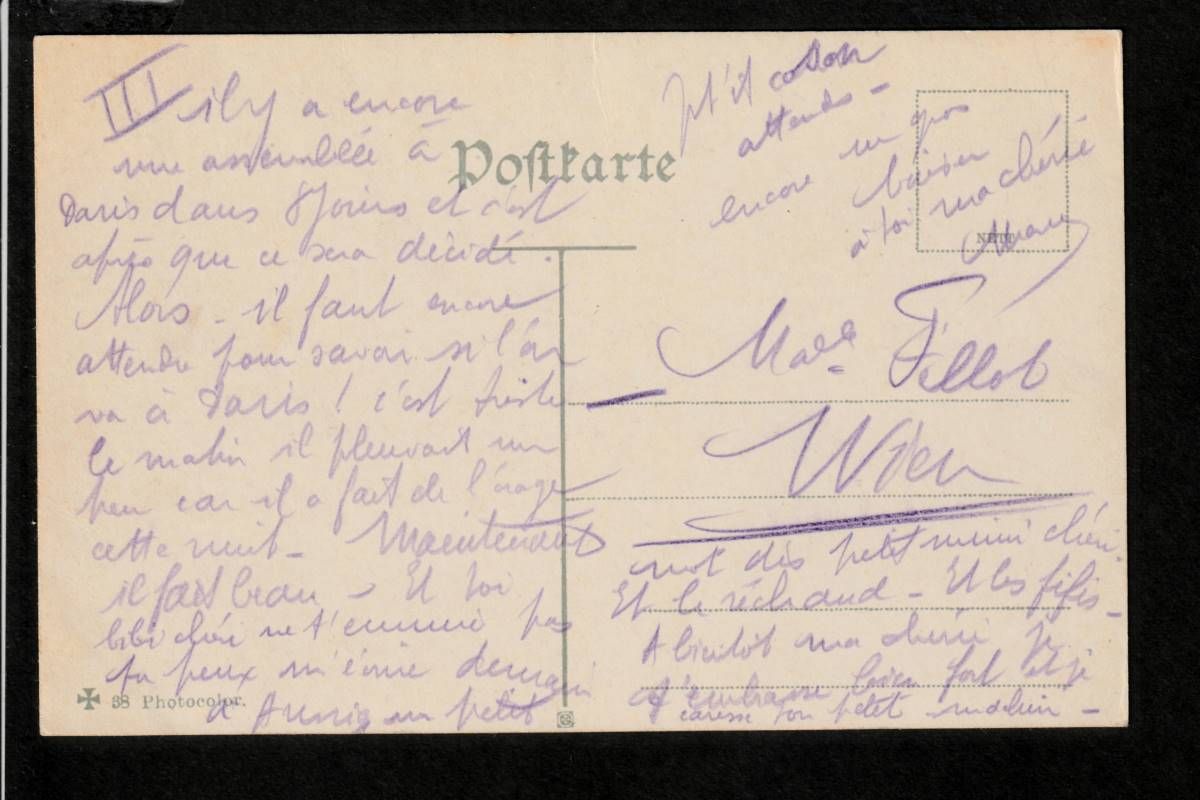 III il y a encore
une assemblée à
Paris dans 8 jours et c'est
après que ce sera décidé.
Alors - il faut encore
attendre pour savoir si l'on
va à Paris ! c'est triste
le matin il pleuvait un
peu car il a fait de l'orage
cette nuit - Maintenant
il fait beau - Et toi
bibi chéri ne t'ennuie pas
tu peux m'écrire demain
à Aussig un petit
mot dis petit mimi chéri.
Et le réchaud - Et les fifis -
A bientôt ma chérie je
t'embrasse bien fort et je
caresse ton petit
attends -
encore un gros
baiser
à toi ma chérie
Postkarte
Made Fillot
Wien
38 Photocolor.